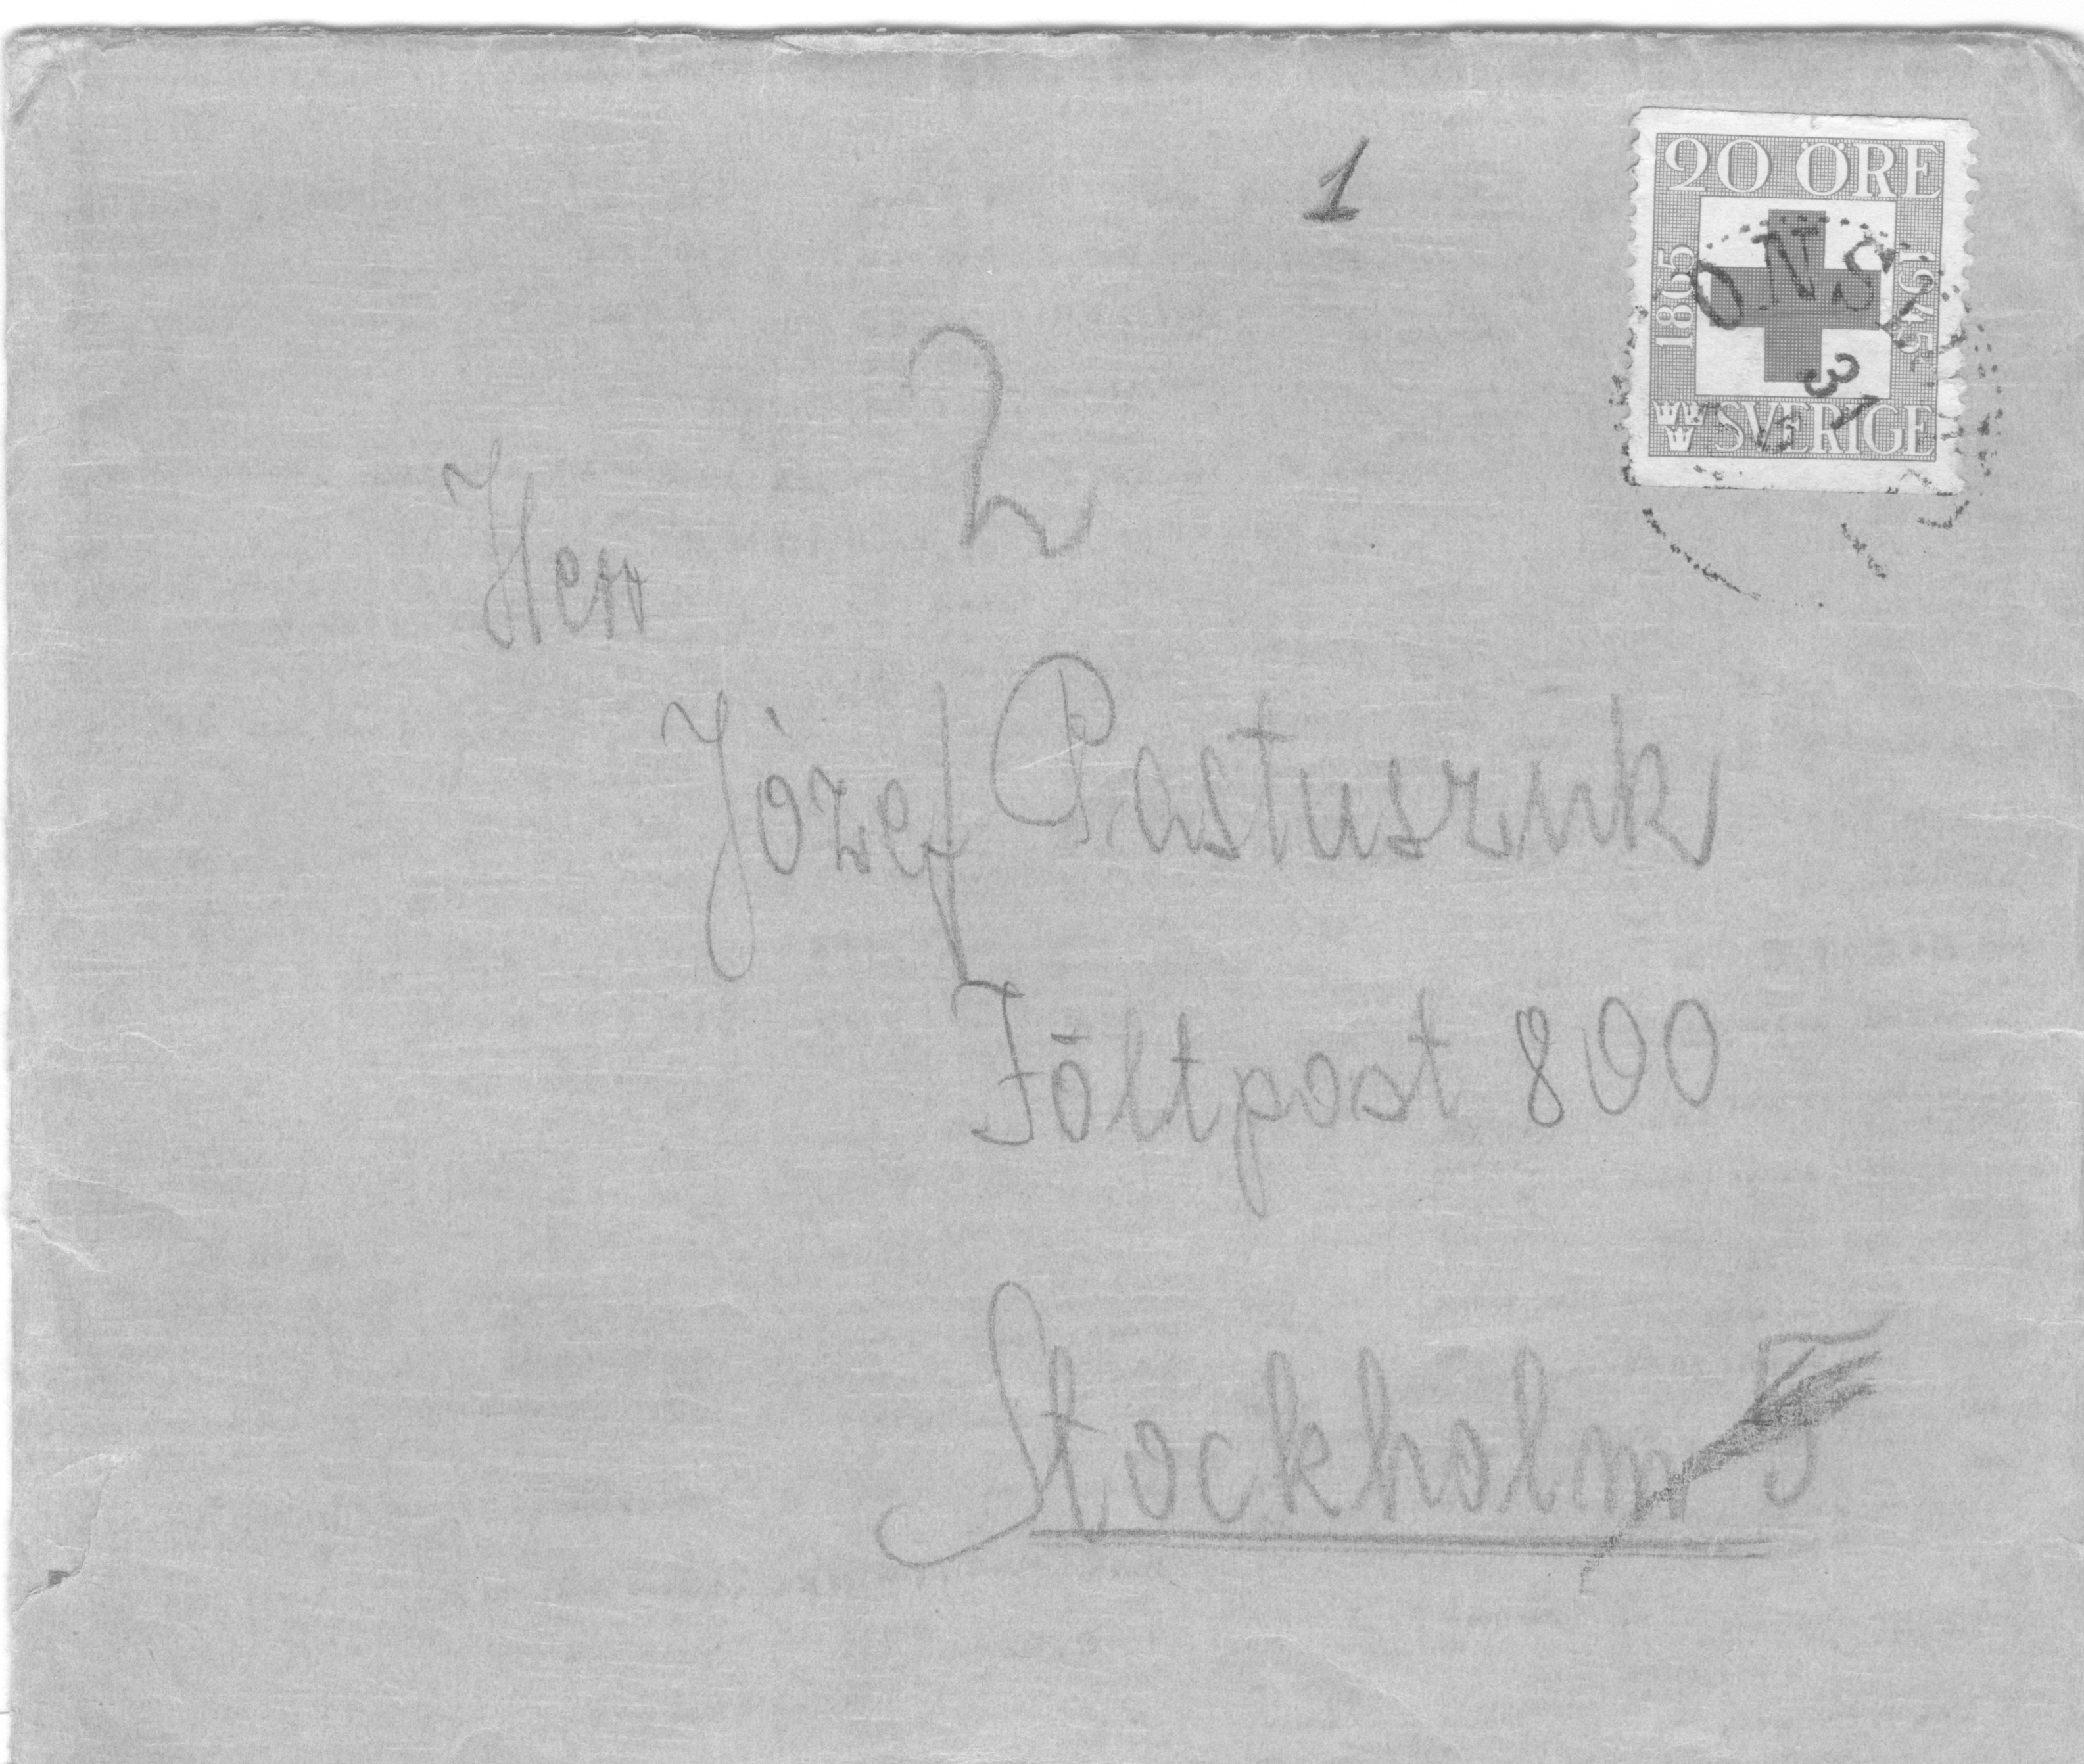 1
20 ÖRE
1865
1945
SVERIGE
ONS
31
2
Herr
Józef Pastuszuk
Föltpost 800
Stockholm